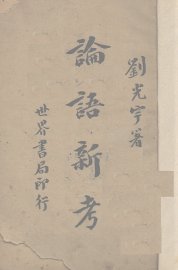 劉光宇著
論語新考
世界書局印行